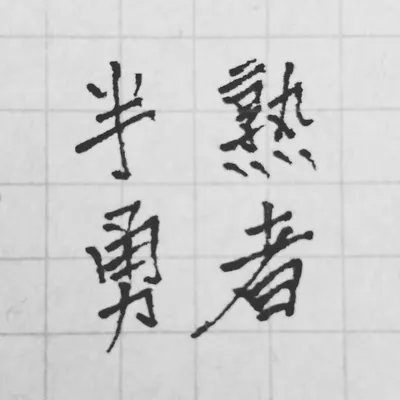 半熟
勇者